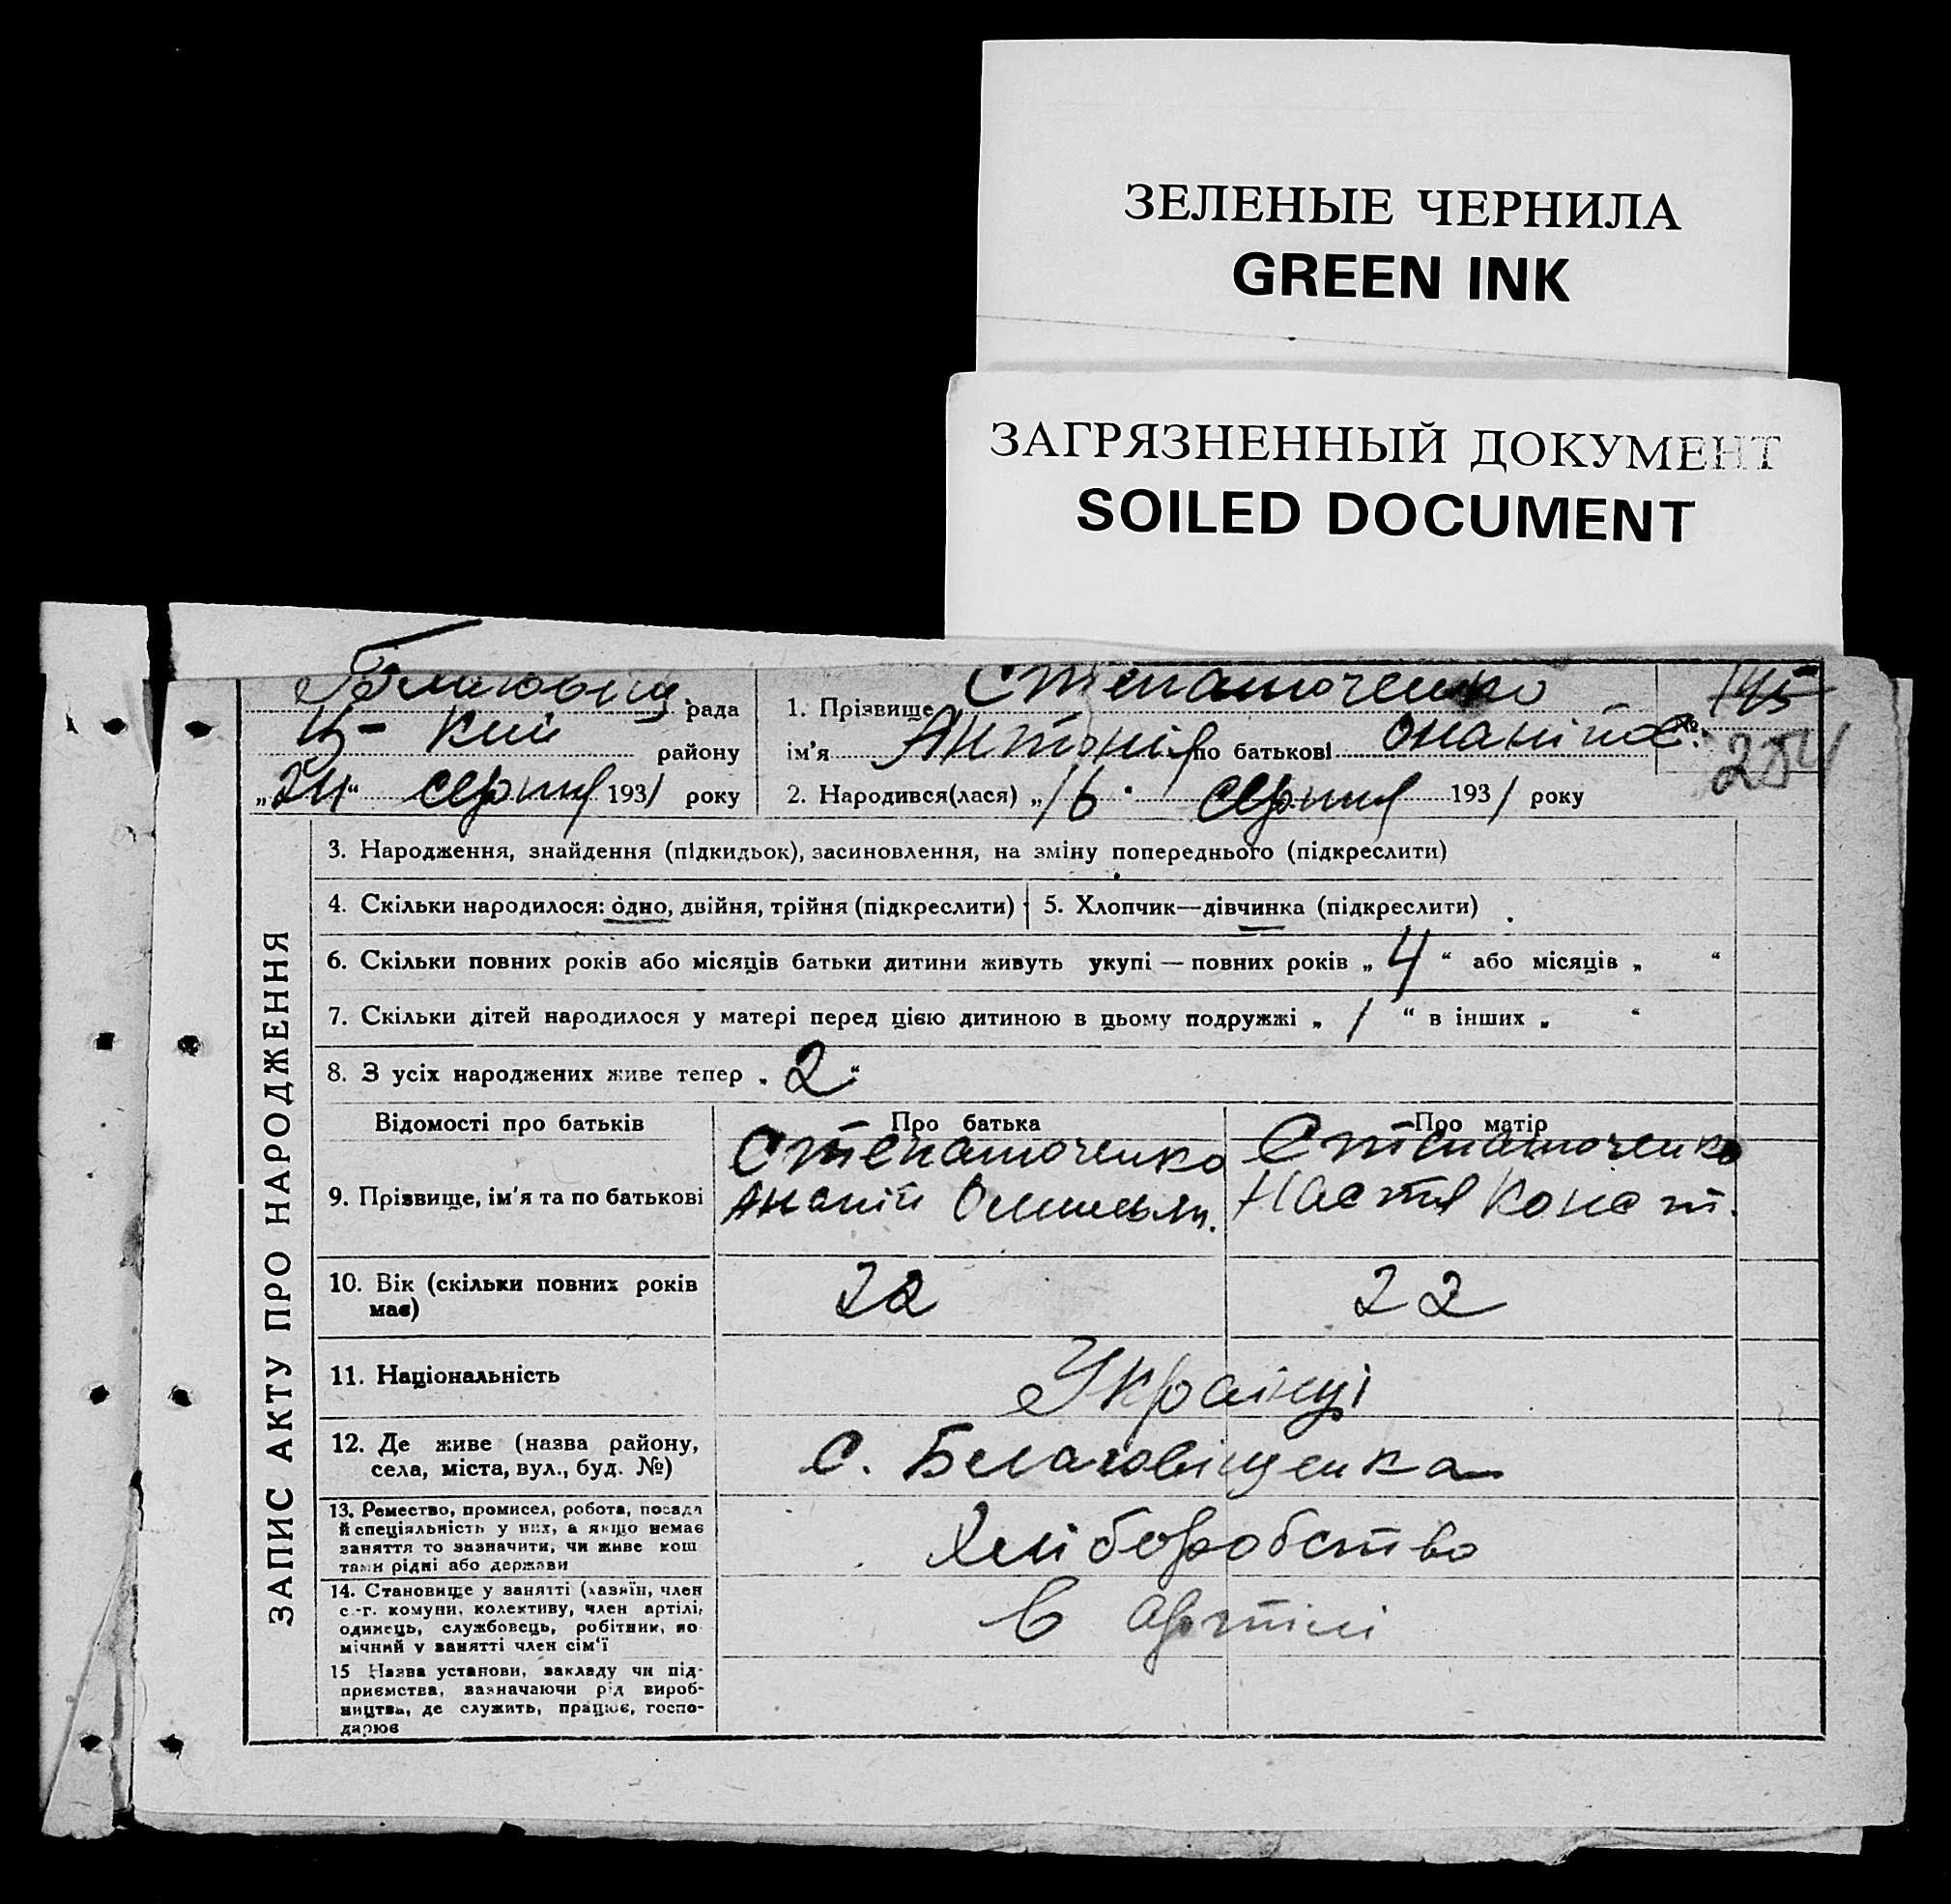 ЗЕЛЕНЫЕ ЧЕРНИЛА
GREEN INK
ЗАГРЯЗНЕННЫЙ ДОКУМЕНТ
SOILED DOCUMENT
рада
району
„24“ серпня 1931 року
1. Прізвище Степаточенко
ім'я Антонія по батькові
2. Народився(лася) „16“ серпня 1931 року
№
145
ЗАПИС АКТУ ПРО НАРОДЖЕННЯ
3. Народження, знайдення (підкидьок), засиновлення, на зміну попереднього (підкреслити)
4. Скільки народилося: одно, двійня, трійня (підкреслити)
5. Хлопчик—дівчинка (підкреслити)
6. Скільки повних років або місяців батьки дитини живуть укупі — повних років „4“ або місяців „ “
7. Скільки дітей народилося у матері перед цією дитиною в цьому подружжі „1“ в інших „ “
8. З усіх народжених живе тепер „2“
Відомості про батьків
Про батька
Про матір
9. Прізвище, ім'я та по батькові
Степаточенко
Ананій
Степаточенко
Настя Конст.
10. Вік (скільки повних років має)
22
22
11. Національність
Українці
12. Де живе (назва району,
села, міста, вул., буд. №)
с. Белаговіщенка
13. Ремество, промисел, робота, посада
й спеціяльність у них, а якщо немає
заняття то зазначити, чи живе кош
тами рідні або держави
Хліборобство
14. Становище у занятті (хазяїн, член
с.-г. комуни, колективу, член артілі,
одинець, службовець, робітник, по-
мічний у занятті член сім'ї
в артілі
15 Назва установи, закладу чи під-
приємства, зазначаючи рід вироб-
ництва, де служить, працює, госпо-
дарює